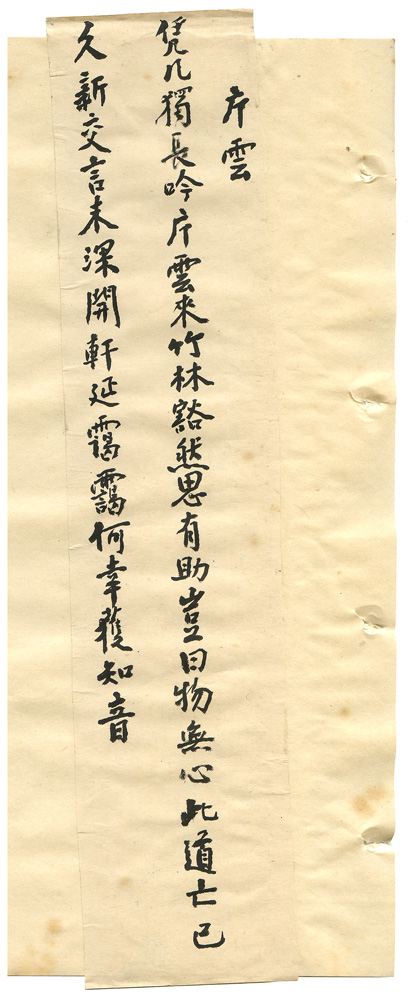 片雲
凭几獨長吟片雲來竹林豁然思有助豈曰物無心此道亡已
久新交言未深開軒延靄靄何幸獲知音